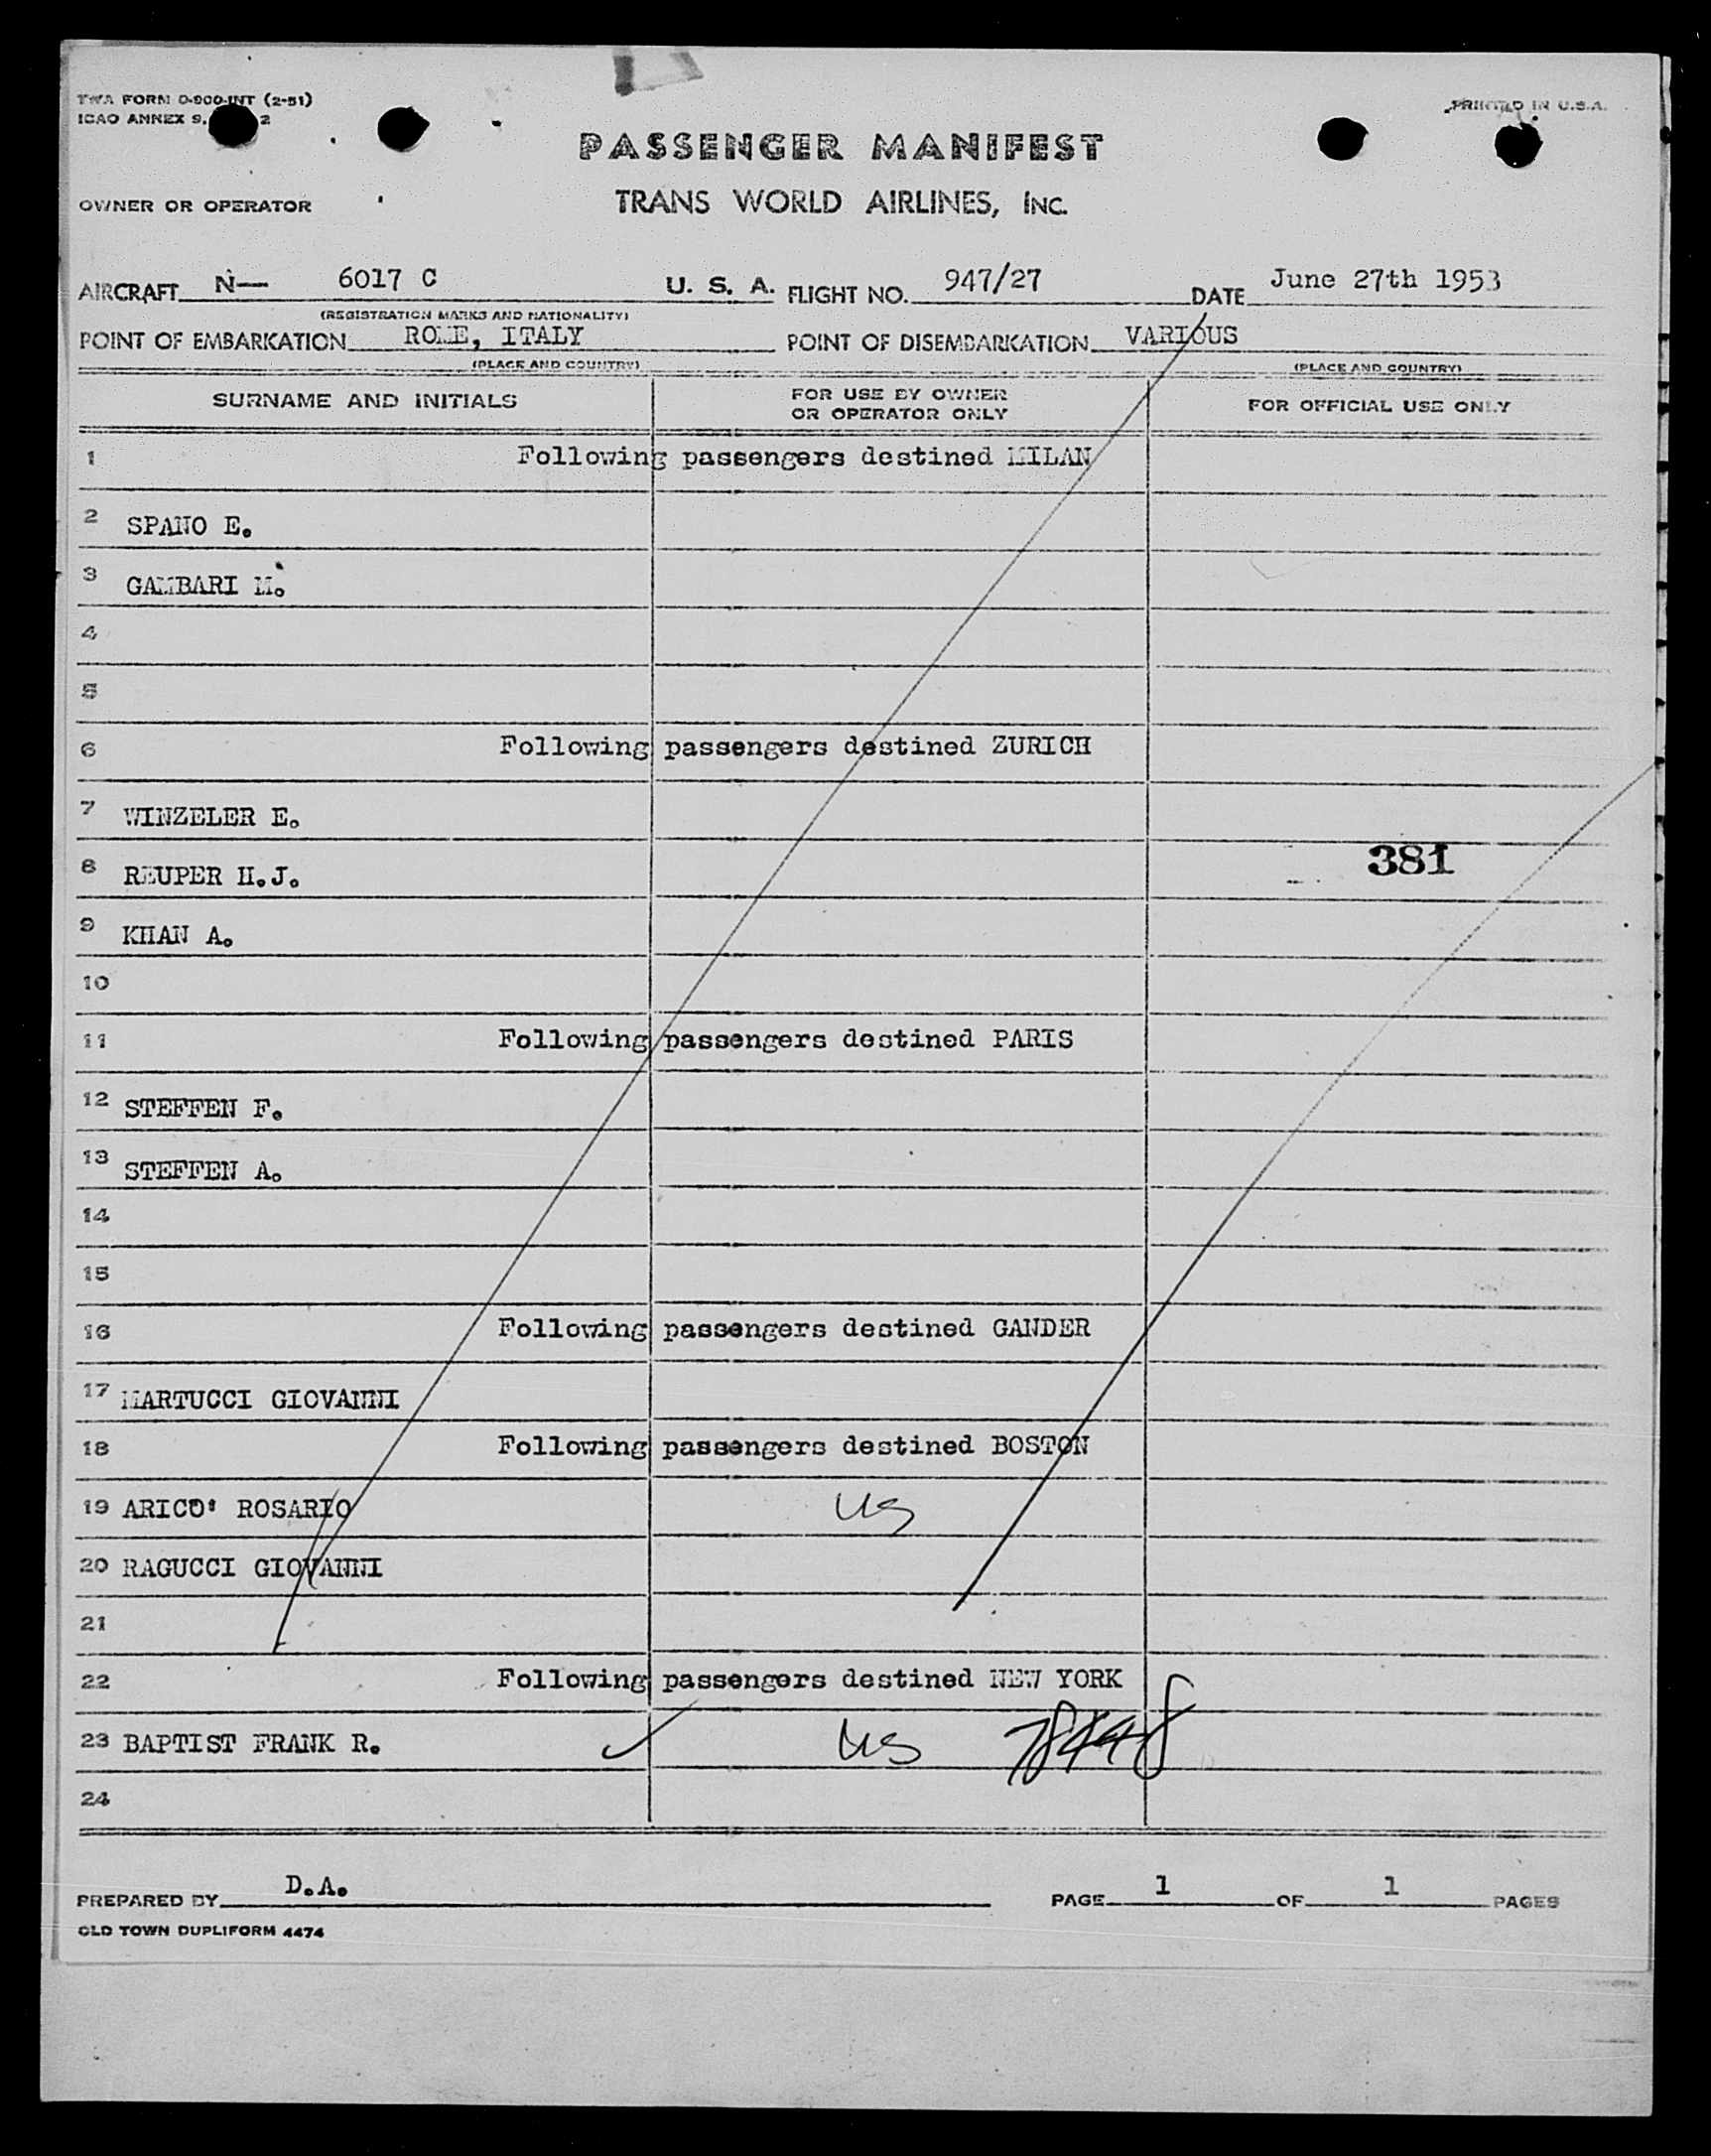 TWA FORM O-900-INT (2-51)
ICAO ANNEX 9, 2
PRINTED IN U.S.A.
PASSENGER MANIFEST
OWNER OR OPERATOR TRANS WORLD AIRLINES, INC.
AIRCRAFT N— 6017 C U. S. A. FLIGHT NO. 947/27 DATE June 27th 1953
(REGISTRATION MARKS AND NATIONALITY)
POINT OF EMBARKATION ROME, ITALY POINT OF DISEMBARKATION VARIOUS
(PLACE AND COUNTRY) (PLACE AND COUNTRY)
SURNAME AND INITIALS FOR USE BY OWNER OR OPERATOR ONLY FOR OFFICIAL USE ONLY
1 Following passengers destined MILAN
2 SPANO E.
3 GAMBARI M.
4
5
6 Following passengers destined ZURICH
7 WINZELER E.
8 REUPER H.J. 381
9 KHAN A.
10
11 Following passengers destined PARIS
12 STEFFEN F.
13 STEFFEN A.
14
15
16 Following passengers destined GANDER
17 MARTUCCI GIOVANNI
18 Following passengers destined BOSTON
19 ARICO' ROSARIO US
20 RAGUCCI GIOVANNI
21
22 Following passengers destined NEW YORK
23 BAPTIST FRANK R. US
24
PREPARED BY D.A. PAGE 1 OF 1 PAGES
OLD TOWN DUPLIFORM 4474